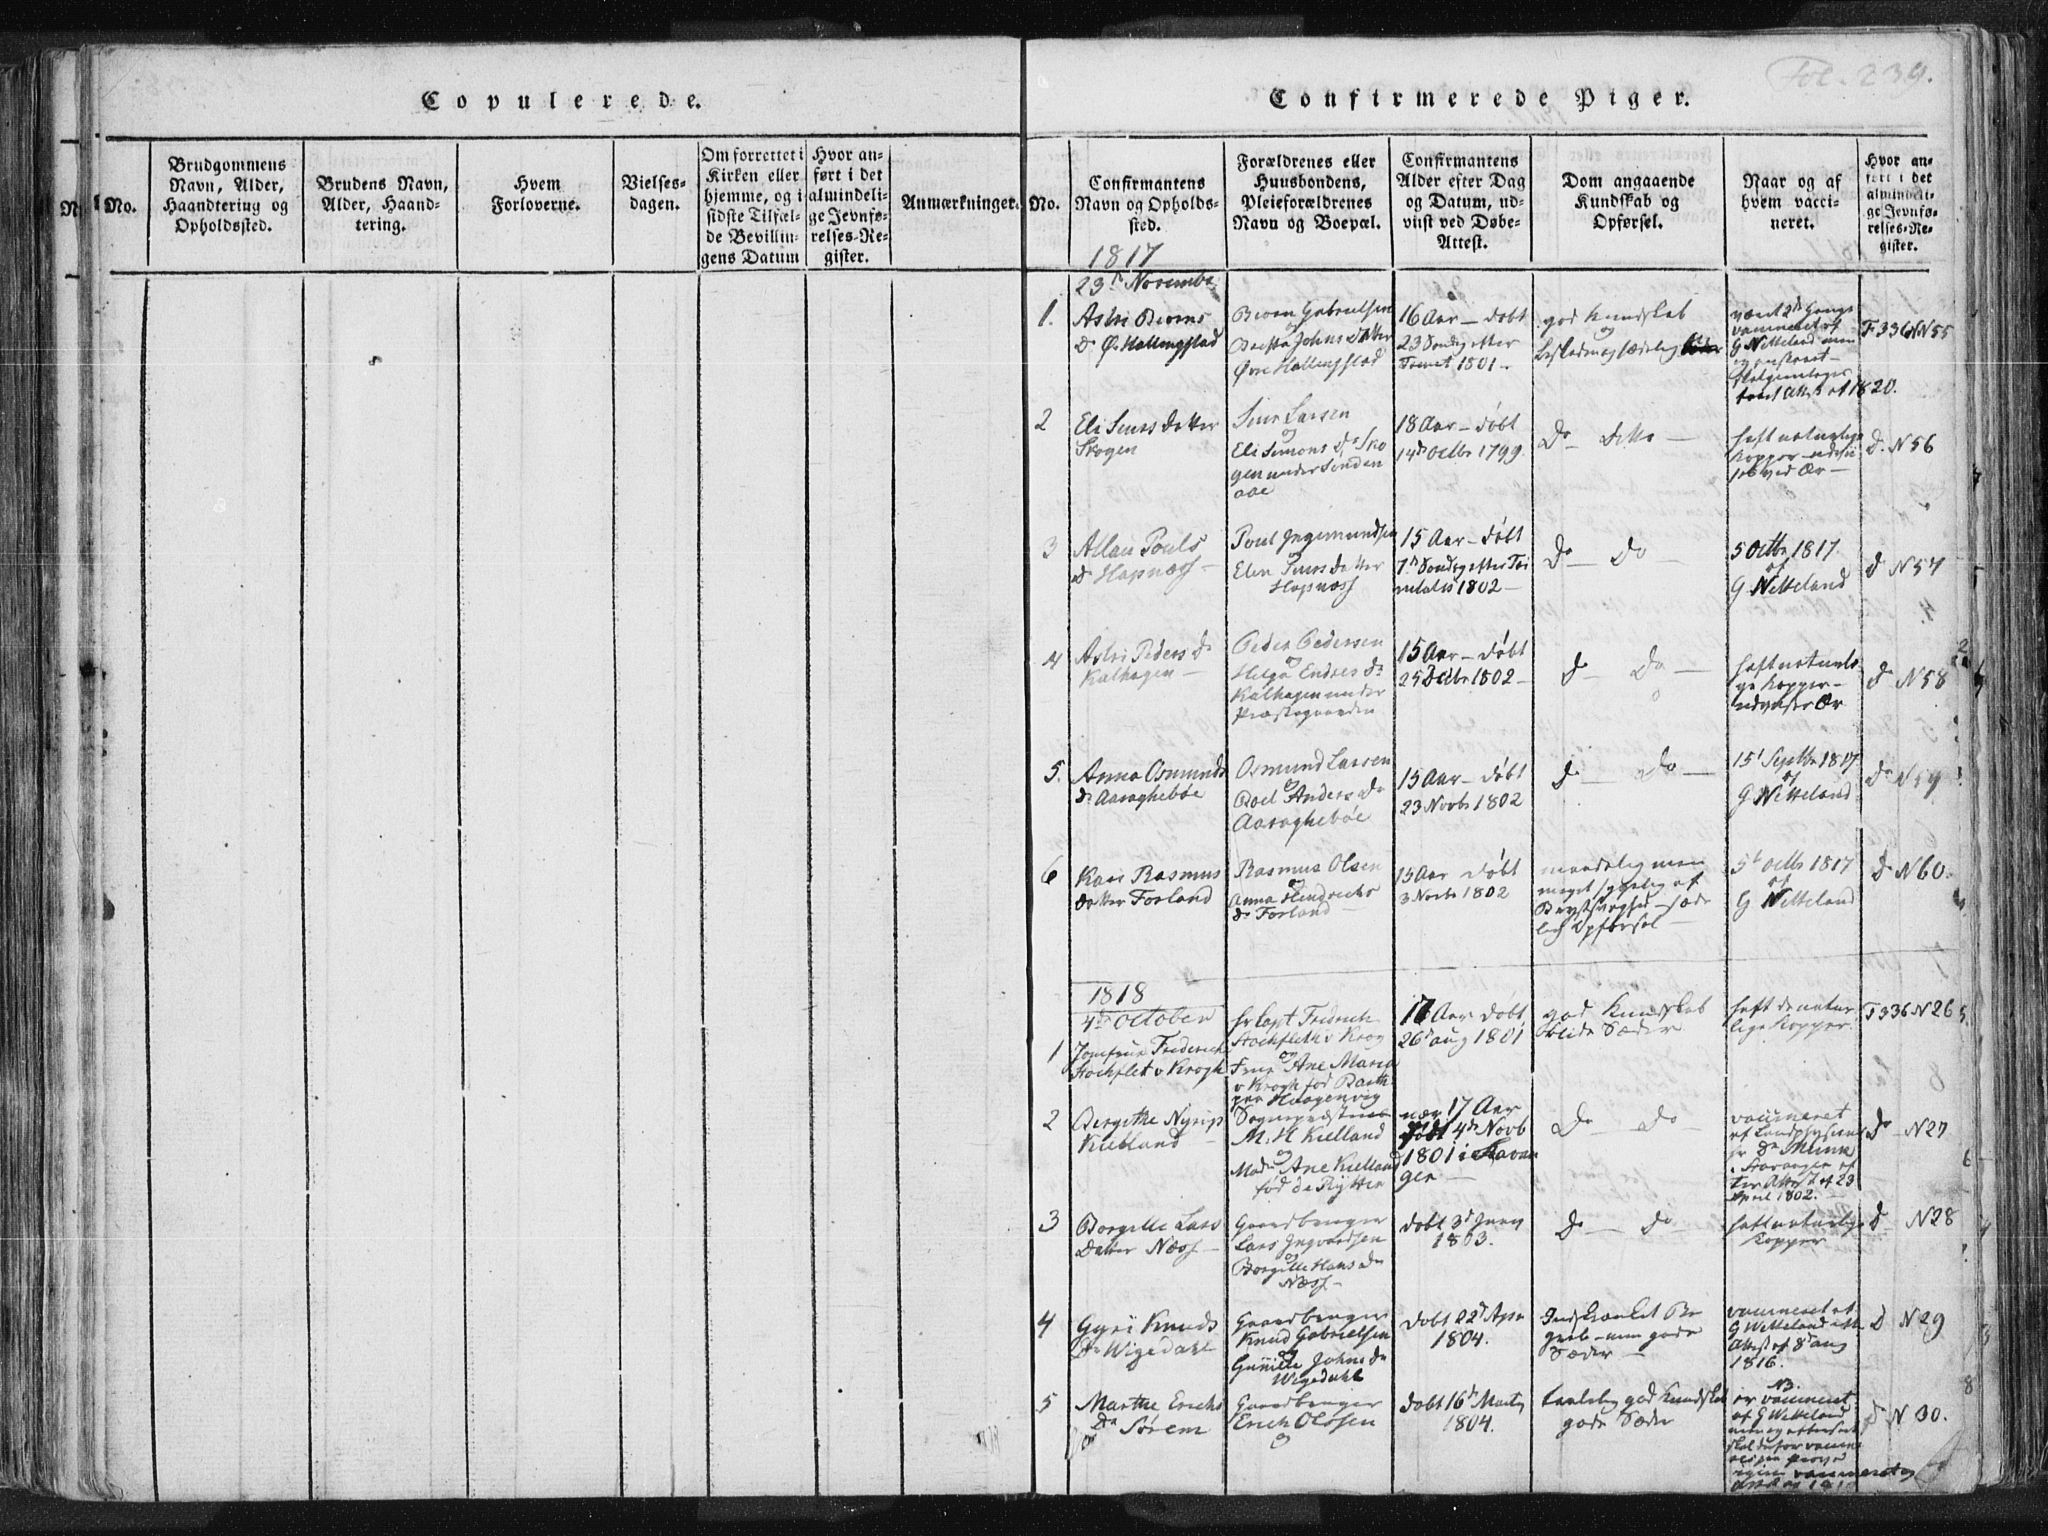 Copulerede.
No.
Brudgommens Navn, Alder, Haandtering og Opholdssted.
Brudens Navn, Alder, Haandtering.
Hvem Forloverne.
Vielsesdagen.
Om forrettet i Kirken eller hjemme, og i sidste Tilfælde Bevillingens Datum
Hvor anført i det almindelige Jevnførelses-Register.
Anmærkninger.
Fol. 239.
Confirmerede Piger.
No.
Confirmantens Navn og Opholdssted.
Forældrenes eller Huusbondens, Pleieforældrenes Navn og Boepæl.
Confirmantens Alder efter Dag og Datum, udviist ved Døbe-Attest.
Dom angaaende Kundskab og Opførsel.
Naar og af hvem vaccineret.
Hvor anført i det almindelige Jevnførelses-Register.
1817
23d Novembr
1.
Astri Biorns
Dr Ø. Hallingstad
Biorn Gabrielsen
og
Johns Datter
Øvre Hallingstad
16 Aar – døbt
23 Søndag efter
Trinit 1801 –
god Kundskab
og
Beskeden og sædelig
været 2de Gange
vaccineret af
G Netteland
Attest af 1820.
F 336 N 55
2
Eli Siurs Datter
Skogen
Siur Larsen
og
Eli Simons Dr Sko
gen under Sønden
aae
18 Aar – døbt
14d Octbr 1799
Do – Ditto –
haft naturlige
Kopper
ved Ar –
D. N 56
3
Pouls
Dr Hopnæss –
Poul Ingemundsen
Elen Siurs Datter
Hopnæss
15 Aar – døbt
7d Søndag efter Tri
nitatis 1802 –
Do – Do –
5 Octbr 1817
af
G Netteland
D N 57
4
Astri Peders Dr
Kalhagen –
Peder Pedersen
og
Helga Endres Dr
Kalhagen under
Præstegaarden
15 Aar – døbt
25 Octbr 1802 –
Do – Do –
haft naturli
ge Kopper –
udviser Ar
D N 58
5.
Anna Osmunds
Dr Aaraghebøe
Osmund Larsen
og
Boel Anders Dr
Aaraghebøe
15 Aar – døbt
23 Novbr 1802
Do – Do –
15d Septbr 1817
af
G Netteland
Do N 59
6
Kari Rasmus
datter Forland
Rasmus Olsen
og
Anna Hendrichs
Dr Forland –
15 Aar døbt
3 Novbr 1802
maadelig men
meget sygelig af
Brystsvaghed – sæde
lig Opførsel –
5t Octbr 1817
af
G Netteland
D N 60.
1818
4de October
1
Jomfrue Friderich
Stochflet v Krogh
Hr Capt Fridrich
Stochfleth v Krog
og
Frue Ane Maria
v Krogh fød Barth
paa Haagenvig
17 Aar døbt
26d aug 1801
god Kundskab
blide Sæder
haft de natur
lige Kopper
F 336 N 26
2
Bergithe Nyrup
Kielland –
Sognepræsten
M. H Kielland
og
Madm Ane Kielland
fød de Rytter
nær 17 Aar
født 4de Novb
1801 i Stavan
ger –
Do – Do
vaccineret
af Landphysicus
Hr Dr Munk
i Stavanger ef
ter Attest af 23
April 1802. –
Do N 27
3
Borgille Lars
Datter Næss –
Gaardbruger
Lars Ingvardsen
og
Borgille Hans Dr
Næss –
døbt 3d Juny
1803.
Do – Do
haft naturlige
Kopper
D N 28
4
Gyri Knuds
Dr Wigedahl
Gaardbruger
Knud Gabrielsen
og
Gunille Johns Dr
Wigedahl
døbt 22d Apr
1804.
Indskrænket Be
greb – men gode
Sæder –
vaccineret af
G Netteland efter
Attest af 8d aug
1816.
D N 29
5
Marthe Erichs
Dr Sørem
Gaardbruger
Erich Olssen
og
døbt 16d Marty
1804.
temlelig god Kundskab
gode Sæder
NB.
er vaccineret
af G Netteland
D N 30.